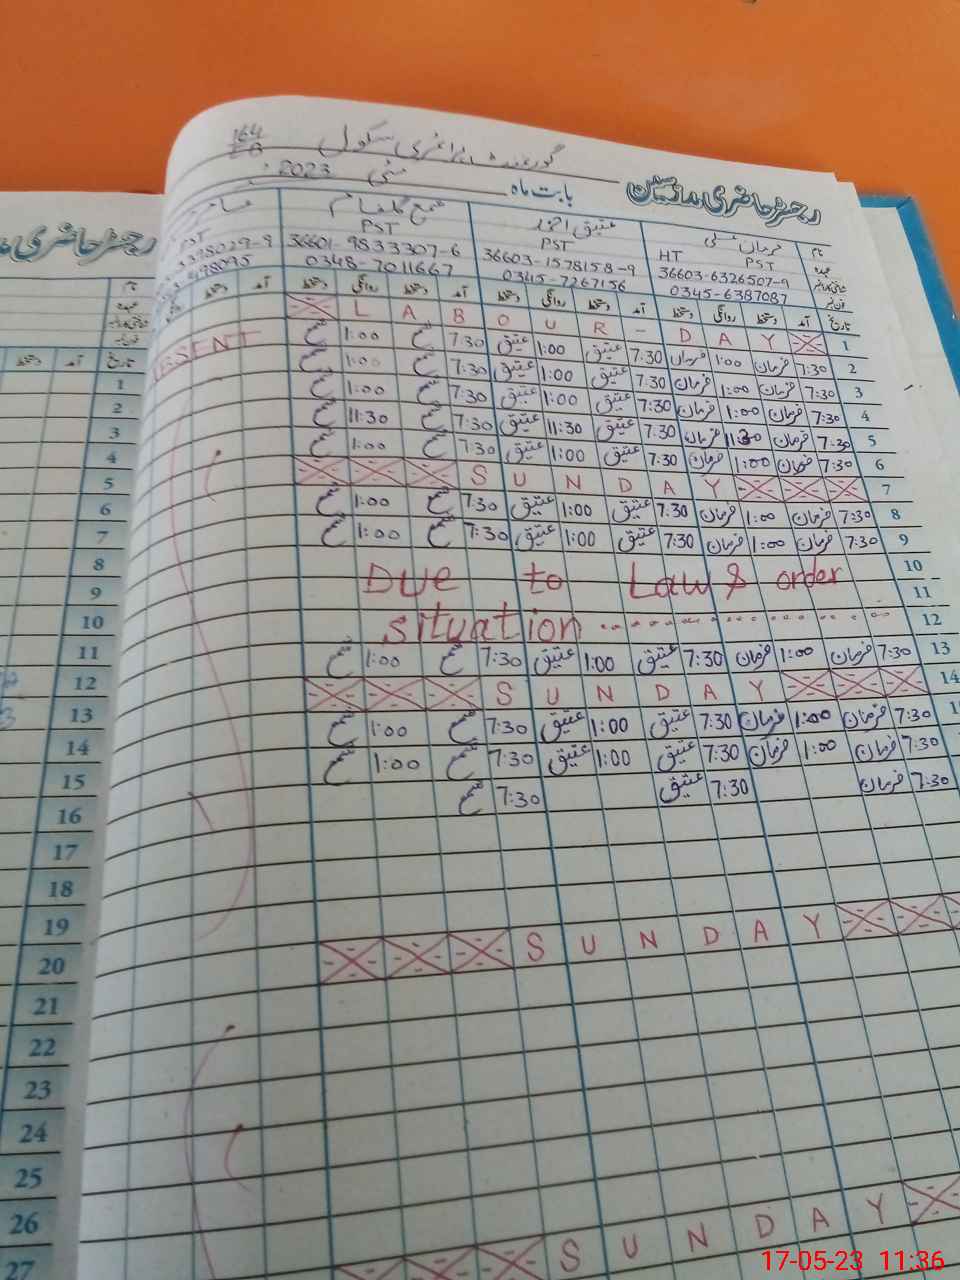 گورنمنٹ پرائمری سکول 164
رجسٹر حاضری مدرسین بابت ماہ مئی 2023
نام فرمان علی عتیق احمد
عہدہ HT PST PST PST PST
36603-6326507-9 36603-1578158-9 36601-9833307-6 398029-9
0345-6387087 0345-7267156 0348-7011667 498095
تاریخ آمد دستخط روانگی دستخط آمد دستخط روانگی دستخط آمد دستخط روانگی دستخط آمد دستخط
1 LABOUR - DAY
2 7:30 فرمان 1:00 فرمان 7:30 عتیق 1:00 عتیق 7:30 1:00
3 7:30 فرمان 1:00 فرمان 7:30 عتیق 1:00 عتیق 7:30 1:00
4 7:30 فرمان 1:00 فرمان 7:30 عتیق 1:00 عتیق 7:30 1:00
5 7:30 فرمان 11:30 فرمان 7:30 عتیق 11:30 عتیق 7:30 11:30
6 7:30 فرمان 1:00 فرمان 7:30 عتیق 1:00 عتیق 7:30 1:00
7 SUNDAY
8 7:30 فرمان 1:00 فرمان 7:30 عتیق 1:00 عتیق 7:30 1:00
9 7:30 فرمان 1:00 فرمان 7:30 عتیق 1:00 عتیق 7:30 1:00
10 Due to Law & order
11
12 situation
13 7:30 فرمان 1:00 فرمان 7:30 عتیق 1:00 عتیق 7:30 1:00
14 SUNDAY
7:30 فرمان 1:00 فرمان 7:30 عتیق 1:00 عتیق 7:30 1:00
7:30 فرمان 1:00 فرمان 7:30 عتیق 1:00 عتیق 7:30 1:00
7:30 فرمان 7:30 عتیق 7:30
SUNDAY
SUNDAY
رجسٹر حاضری
نام
عہدہ
تاریخ آمد دستخط
1
2
3
4
5
6
7
8
9
10
11
12
13
14
15
16
17
18
19
20
21
22
23
24
25
26
27
17-05-23 11:36